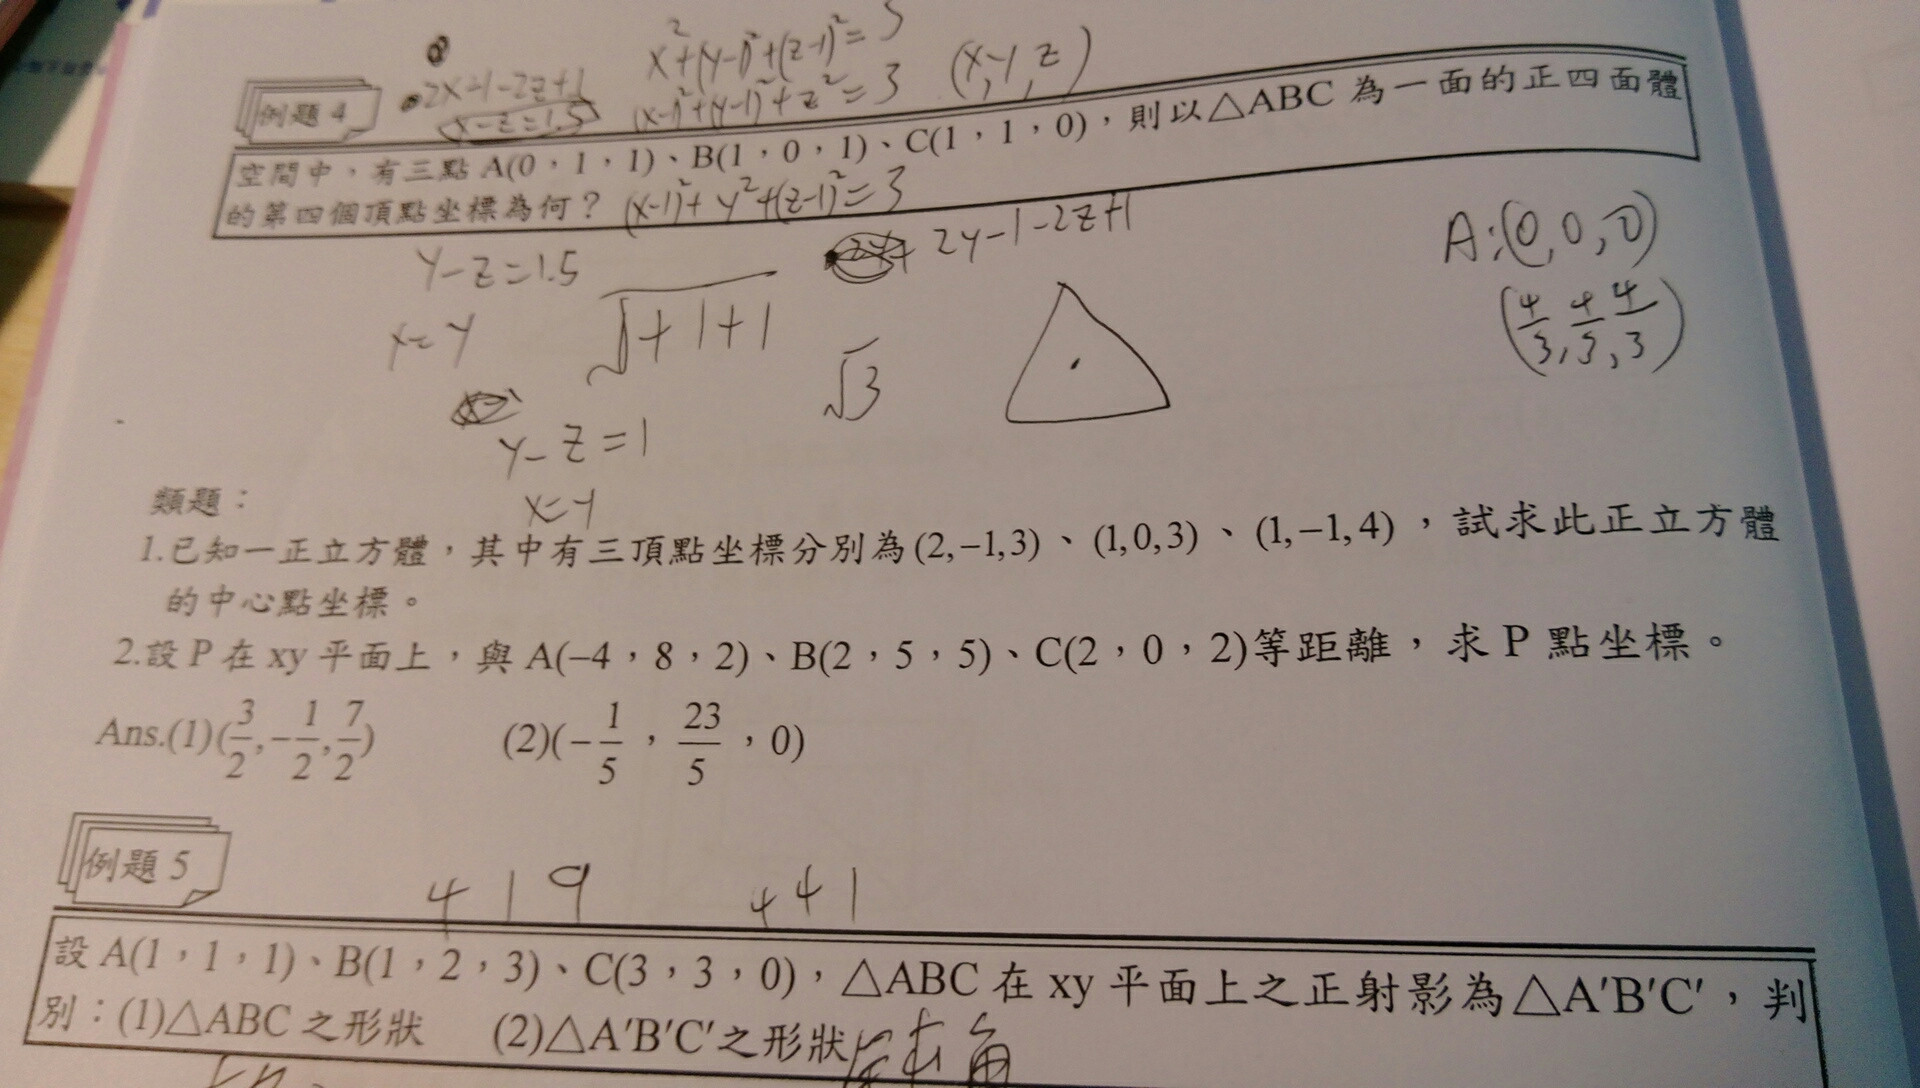 x²+(y-1)²+(z-1)²=3
2x-1-2z+1
(x-1)²+(y-1)²+z²=3 (x,y,z)
x-z=1.5
例題4
空間中，有三點A(0，1，1)、B(1，0，1)、C(1，1，0)，則以△ABC 為一面的正四面體
的第四個頂點坐標為何？ (x-1)²+y²+(z-1)²=3
y-z=1.5
2y-1-2z+1
A:(0,0,0)
x=y
√1+1+1
√3
(4/3,4/3,4/3)
y-z=1
x=y
類題：
1.已知一正立方體，其中有三頂點坐標分別為(2,−1,3)、(1,0,3)、(1,−1,4)，試求此正立方體
的中心點坐標。
2.設P在xy平面上，與A(−4，8，2)、B(2，5，5)、C(2，0，2)等距離，求P點坐標。
Ans.(1)(3/2,−1/2,7/2) (2)(−1/5，23/5，0)
例題5
4 1 9 4 4 1
設A(1，1，1)、B(1，2，3)、C(3，3，0)，△ABC在xy平面上之正射影為△A′B′C′，判
別：(1)△ABC之形狀 (2)△A′B′C′之形狀